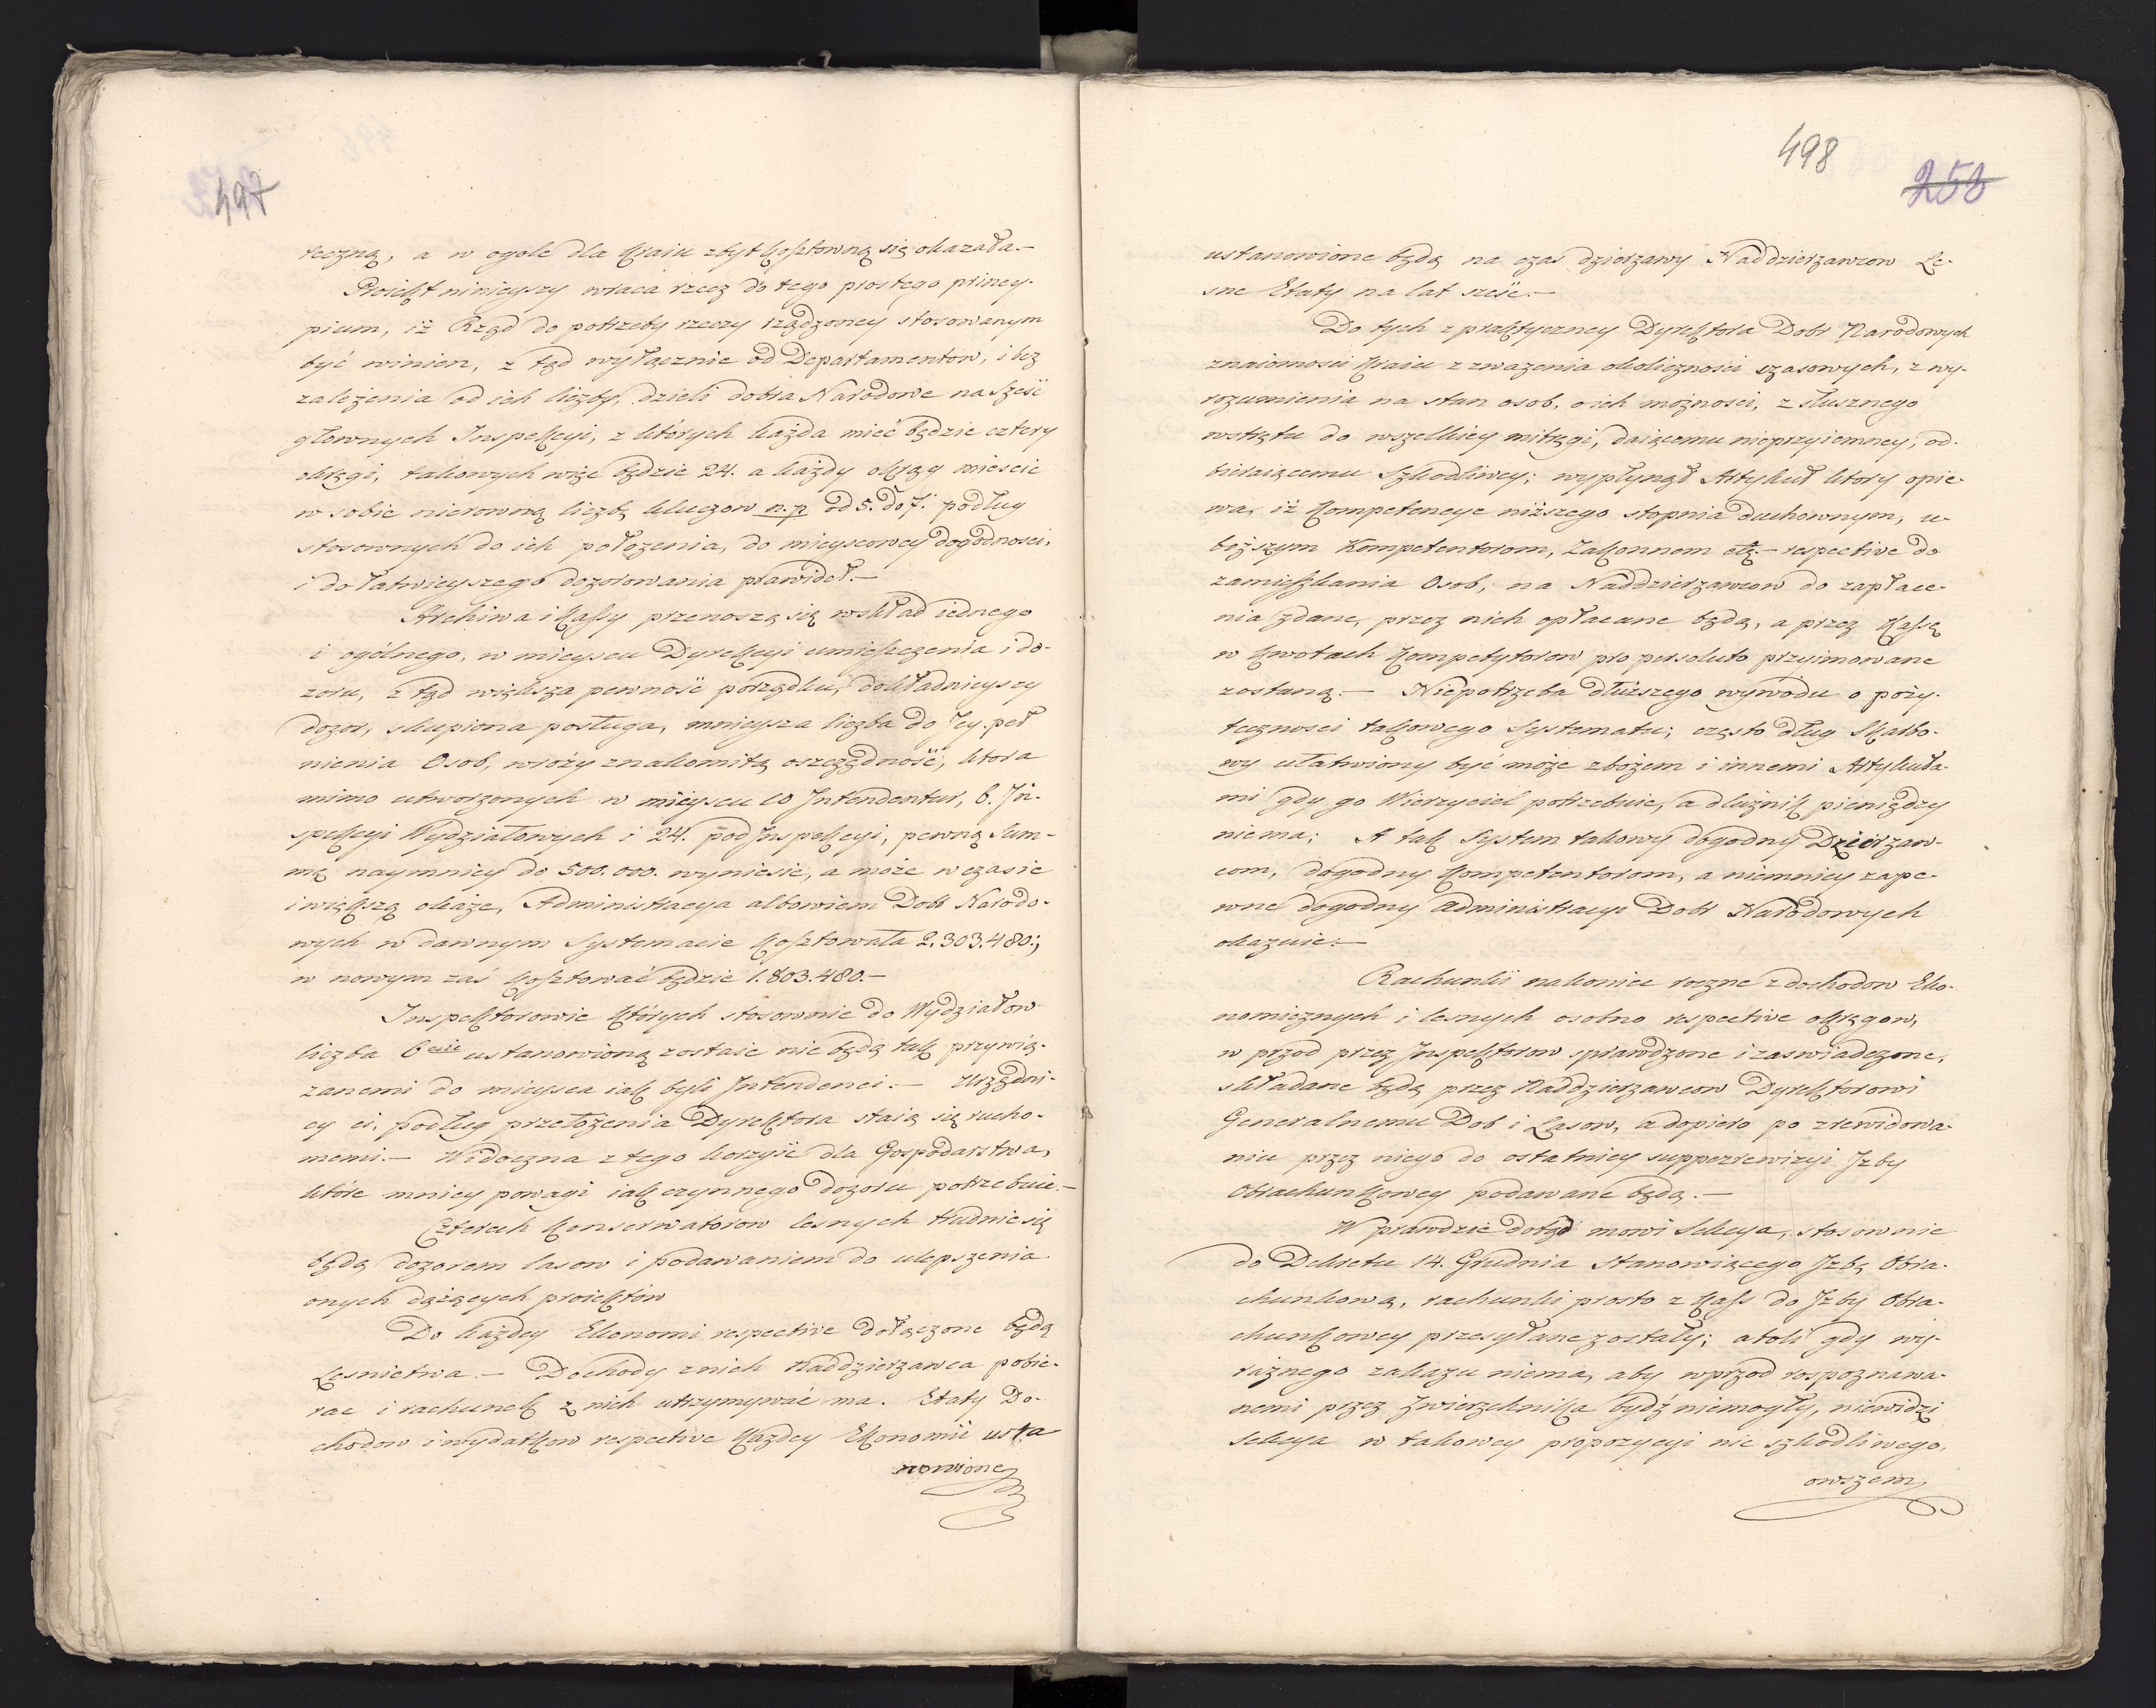 497
teczną, a w ogole dla Kraiu zbyt kosztowną się okazała.—
Proiekt ninieyszy wraca rzecz do tego prostego princy-
pium, iż Rząd do potrzeby rzeczy rządzoney stosowanym
być winien, z tąd wyłącznie od Departamentow, i bez
zależenia od ich liczby, dzieli dobra Narodowe na sześć
głownych Inspekcyi, z których każda mieć będzie cztery
okręgi, takowych więc będzie 24. a każdy okrąg mieścić
w sobie nierowną liczbę kluczow n.p. od 5. do 7. podług
stosownych do ich położenia, do mieyscowey dogodności,
i do łatwieyszego dozorowania prawideł.—
Archiwa i Kassy przenoszą się w skład iednego
i ogólnego, w mieyscu Dyrekcyi umieszczenia i do-
zoru, z tąd większa pewność porządku, dokładnieyszy
dozor, skupiona posługa, mnieysza liczba do Jey peł
nienia Osob, wróży znakomitą oszczędność, ktora
mimo utworzonych w mieyscu 10 Intendentur, 6. In-
spekcyi Wydziałowych i 24. podInspekcyi, pewną Sum-
mę naymniey do 500.000. wyniesie, a może w czasie
i większą okaże, Administracya albowiem Dobr Narodo-
wych w dawnym Systemacie kosztowała 2.303.480.;
w nowym zaś kosztować będzie 1.803.480.—
Inspektorowie których stosownie do Wydziałow
liczba 6ciu ustanowioną zostaie nie będą tak przywią-
zanemi do mieysca iak byli Intendenci.— Urzędni-
cy ci, podług przełożenia Dyrektora staią się rucho-
memi.— Widoczna z tego korzyść dla Gospodarstwa,
które mniey powagi iak czynnego dozoru potrzebuie.—
Czterech Konserwatorow lesnych trudnić się
będą dozorem lasow i podawaniem do ulepszenia
onych dążących proiektow
Do każdey Ekonomi respective dołączone będą
Lesnictwa.— Dochody z nich Naddzierzawca pobie-
rac i rachunek z nich utrzymywać ma. Etaty Do-
chodow i wydatkow respective Kazdey Ekonomii usta
nowione
498
252
ustanowione będą na czas dzierzawy Naddzierzawcow Le-
sne Etaty na lat sześć.—
Do tych z praktyczney Dyrektora Dobr Narodowych
znaiomości Kraiu z zwazenia okoliczności czasowych, z wy-
rozumienia na stan osob, o ich możności, z słusznego
wstrętu do wszelkiey mitręgi, daiącemu nieprzyiemney, od-
bieraiącemu szkodliwey; wypłynął Artykuł ktory opie-
wa, iż Kompetencye niższego stopnia duchownym, u-
boższym Kompetentorom, Zakonnem etc:— respective do
zamieszkania Osob, na Naddzierzawcow do zapłace-
nia zdane, przez nich opłacane będą, a przez Kassę
w kwotach Kompetytorow pro persoluto przyimowane
zostaną.— Niepotrzeba dłuższego wywodu o poży-
teczności takowego Systematu; często dług Skarbo-
wy ułatwiony być może zbożem i innemi Artykuła-
mi gdy go Wierzyciel potrzebuie, a dłużnik pieniędzy
niema; A tak System takowy dogodny Dzierzaw-
com, dogodny Kompetentorom, a niemniey zape-
wne dogodny administracyi Dobr Narodowych
okazuie.—
Rachunki nakoniec roczne z dochodow Eko-
nomicznych i lesnych osobno respective okręgow,
w przod przez Inspektorow sprawdzone i zaswiadczone,
składane będą przez Naddzierzawcow Dyrektorowi
Generalnemu Dob i Lasow, a dopiero po zrewidowa-
niu przez niego do ostatniey supperrewizyi Jzby
Obrachunkowey podawane będą.—
W prawdzie dotąd mowi Sekcya, stosownie
do Dekretu 14. Grudnia stanowiącego Jzbę Obra-
chunkową, rachunki prosto z Kass do Jzby Obra-
chunkowey przesyłane zostały; atoli gdy wy-
rażnego zakazu niema, aby wprzod rospoznawa-
nemi przez Zwierzchnika bydź niemogły, niewidzi
Sekcya w takowey propozycyi nic szkodliwego,
owszem